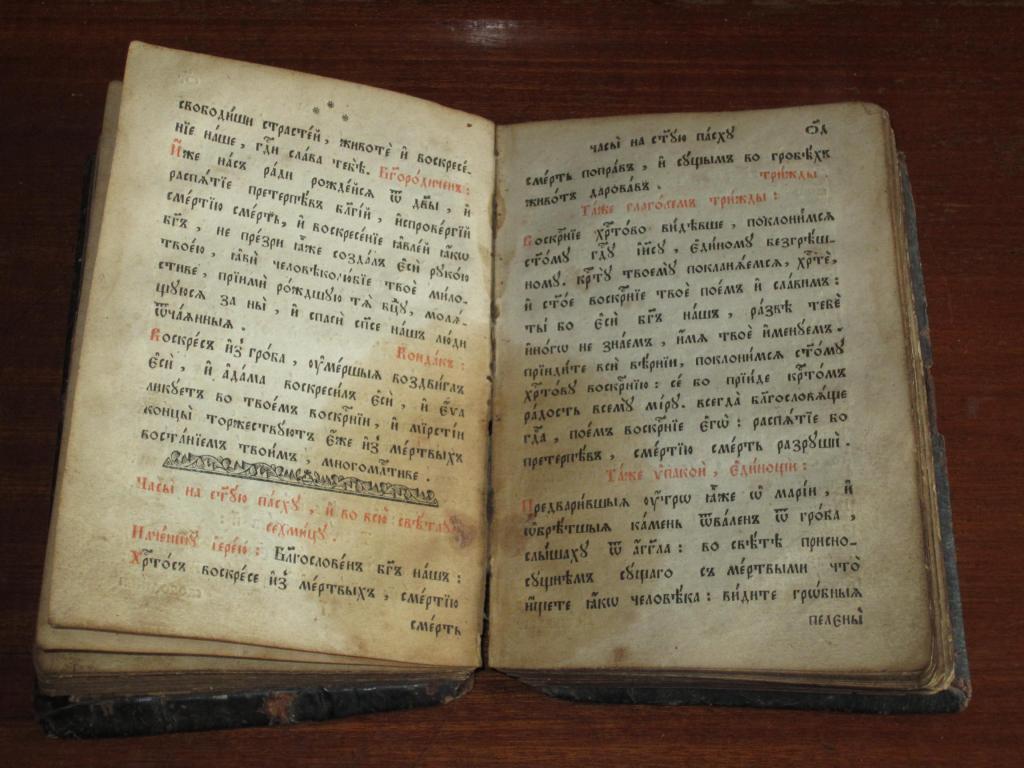 свободи́вши страсте́й, животѐ и҆ воскресе́-
нїе на́ше, гдⷭ҇и сла́ва тебѣ̀. Бг҃оро́диченъ:
И҆́же на́съ ра́ди рожде́йсѧ ѿ двⷭ҇ы, и҆
распѧ́тїе претерпѣ́въ бл҃гі́й, и҆спрове́ргїй
сме́ртїю сме́рть, и҆ воскресе́нїе ꙗ҆вле́й ꙗ҆́кѡ
бг҃ъ, не пре́зри ꙗ҆̀же созда́лъ є҆сѝ руко́ю
твое́ю, ꙗ҆вѝ человѣколю́бїе твоѐ ми́ло-
стиве, прїимѝ ро́ждшую тѧ̀ бцⷣу, молѧ́-
щуюсѧ за ны̀, и҆ спасѝ сп҃се на́шъ лю́ди
ѿча́ѧнныѧ. Конда́къ:
Воскре́съ и҆з̾ гро́ба, ᲂу҆ме́ршыѧ воздви́глъ
є҆сѝ, и҆ а҆да́ма воскреси́лъ є҆сѝ, и҆ є҆́ѵа
лику́етъ во твое́мъ воскрⷭ҇нїи, и҆ мірсті́и
концы̀ торжеству́ютъ є҆́же и҆з̾ ме́ртвыхъ
воста́нїемъ твои́мъ, многомлⷭ҇тиве.
Часы̀ на ст҃у́ю па́сху, и҆ во всю̀ свѣ́тлую
седми́цу.
Наче́ншу і҆ере́ю: Бл҃гослове́нъ бг҃ъ на́шъ:
Хрⷭ҇то́съ воскре́се и҆з̾ ме́ртвыхъ, сме́ртїю
сме́рть
часы̀ на ст҃у́ю па́сху ѻ҃д
сме́рть попра́въ, и҆ су́щымъ во гробѣ́хъ
живо́тъ дарова́въ. три́жды.
Та́же глаго́лемъ три́жды:
Воскрⷭ҇нїе хрⷭ҇то́во ви́дѣвше, поклони́мсѧ
ст҃о́му гдⷭ҇у і҆и҃су, є҆ди́ному безгрѣ́ш-
ному. крⷭ҇тꙋ̀ твоемꙋ̀ покланѧ́емсѧ, хрⷭ҇тѐ,
и҆ ст҃о́е воскрⷭ҇нїе твоѐ пое́мъ и҆ сла́вимъ:
ты́ бо є҆сѝ бг҃ъ на́шъ, ра́звѣ тебѐ
и҆но́гѡ не зна́емъ, и҆́мѧ твоѐ и҆менꙋ́емъ.
прїиди́те всѝ вѣ́рнїи, поклони́мсѧ ст҃о́му
хрⷭ҇то́ву воскрⷭ҇нїю: се́ бо прїи́де крⷭ҇то́мъ
ра́дость всемꙋ̀ мі́ру. всегда̀ бл҃гословѧ́ще
гдⷭ҇а, пое́мъ воскрⷭ҇нїе є҆гѡ̀: распѧ́тїе бо
претерпѣ́въ, сме́ртїю сме́рть разрꙋшѝ.
Та́же ѵ҆пакоѝ, є҆ди́ножи:
Предвари́вшыѧ ᲂу҆́трѡ ꙗ҆̀же ѡ҆ марі́и, и҆
ѡ҆брѣ́тшыѧ ка́мень ѿвале́нъ ѿ гро́ба,
слы́шаху ѿ а҆́гг҃ла: во свѣ́тѣ присно-
су́щнѣмъ су́щаго съ ме́ртвыми что̀
и҆́щете ꙗ҆́кѡ человѣ́ка: ви́дите грѡ́бныѧ
пелены̀